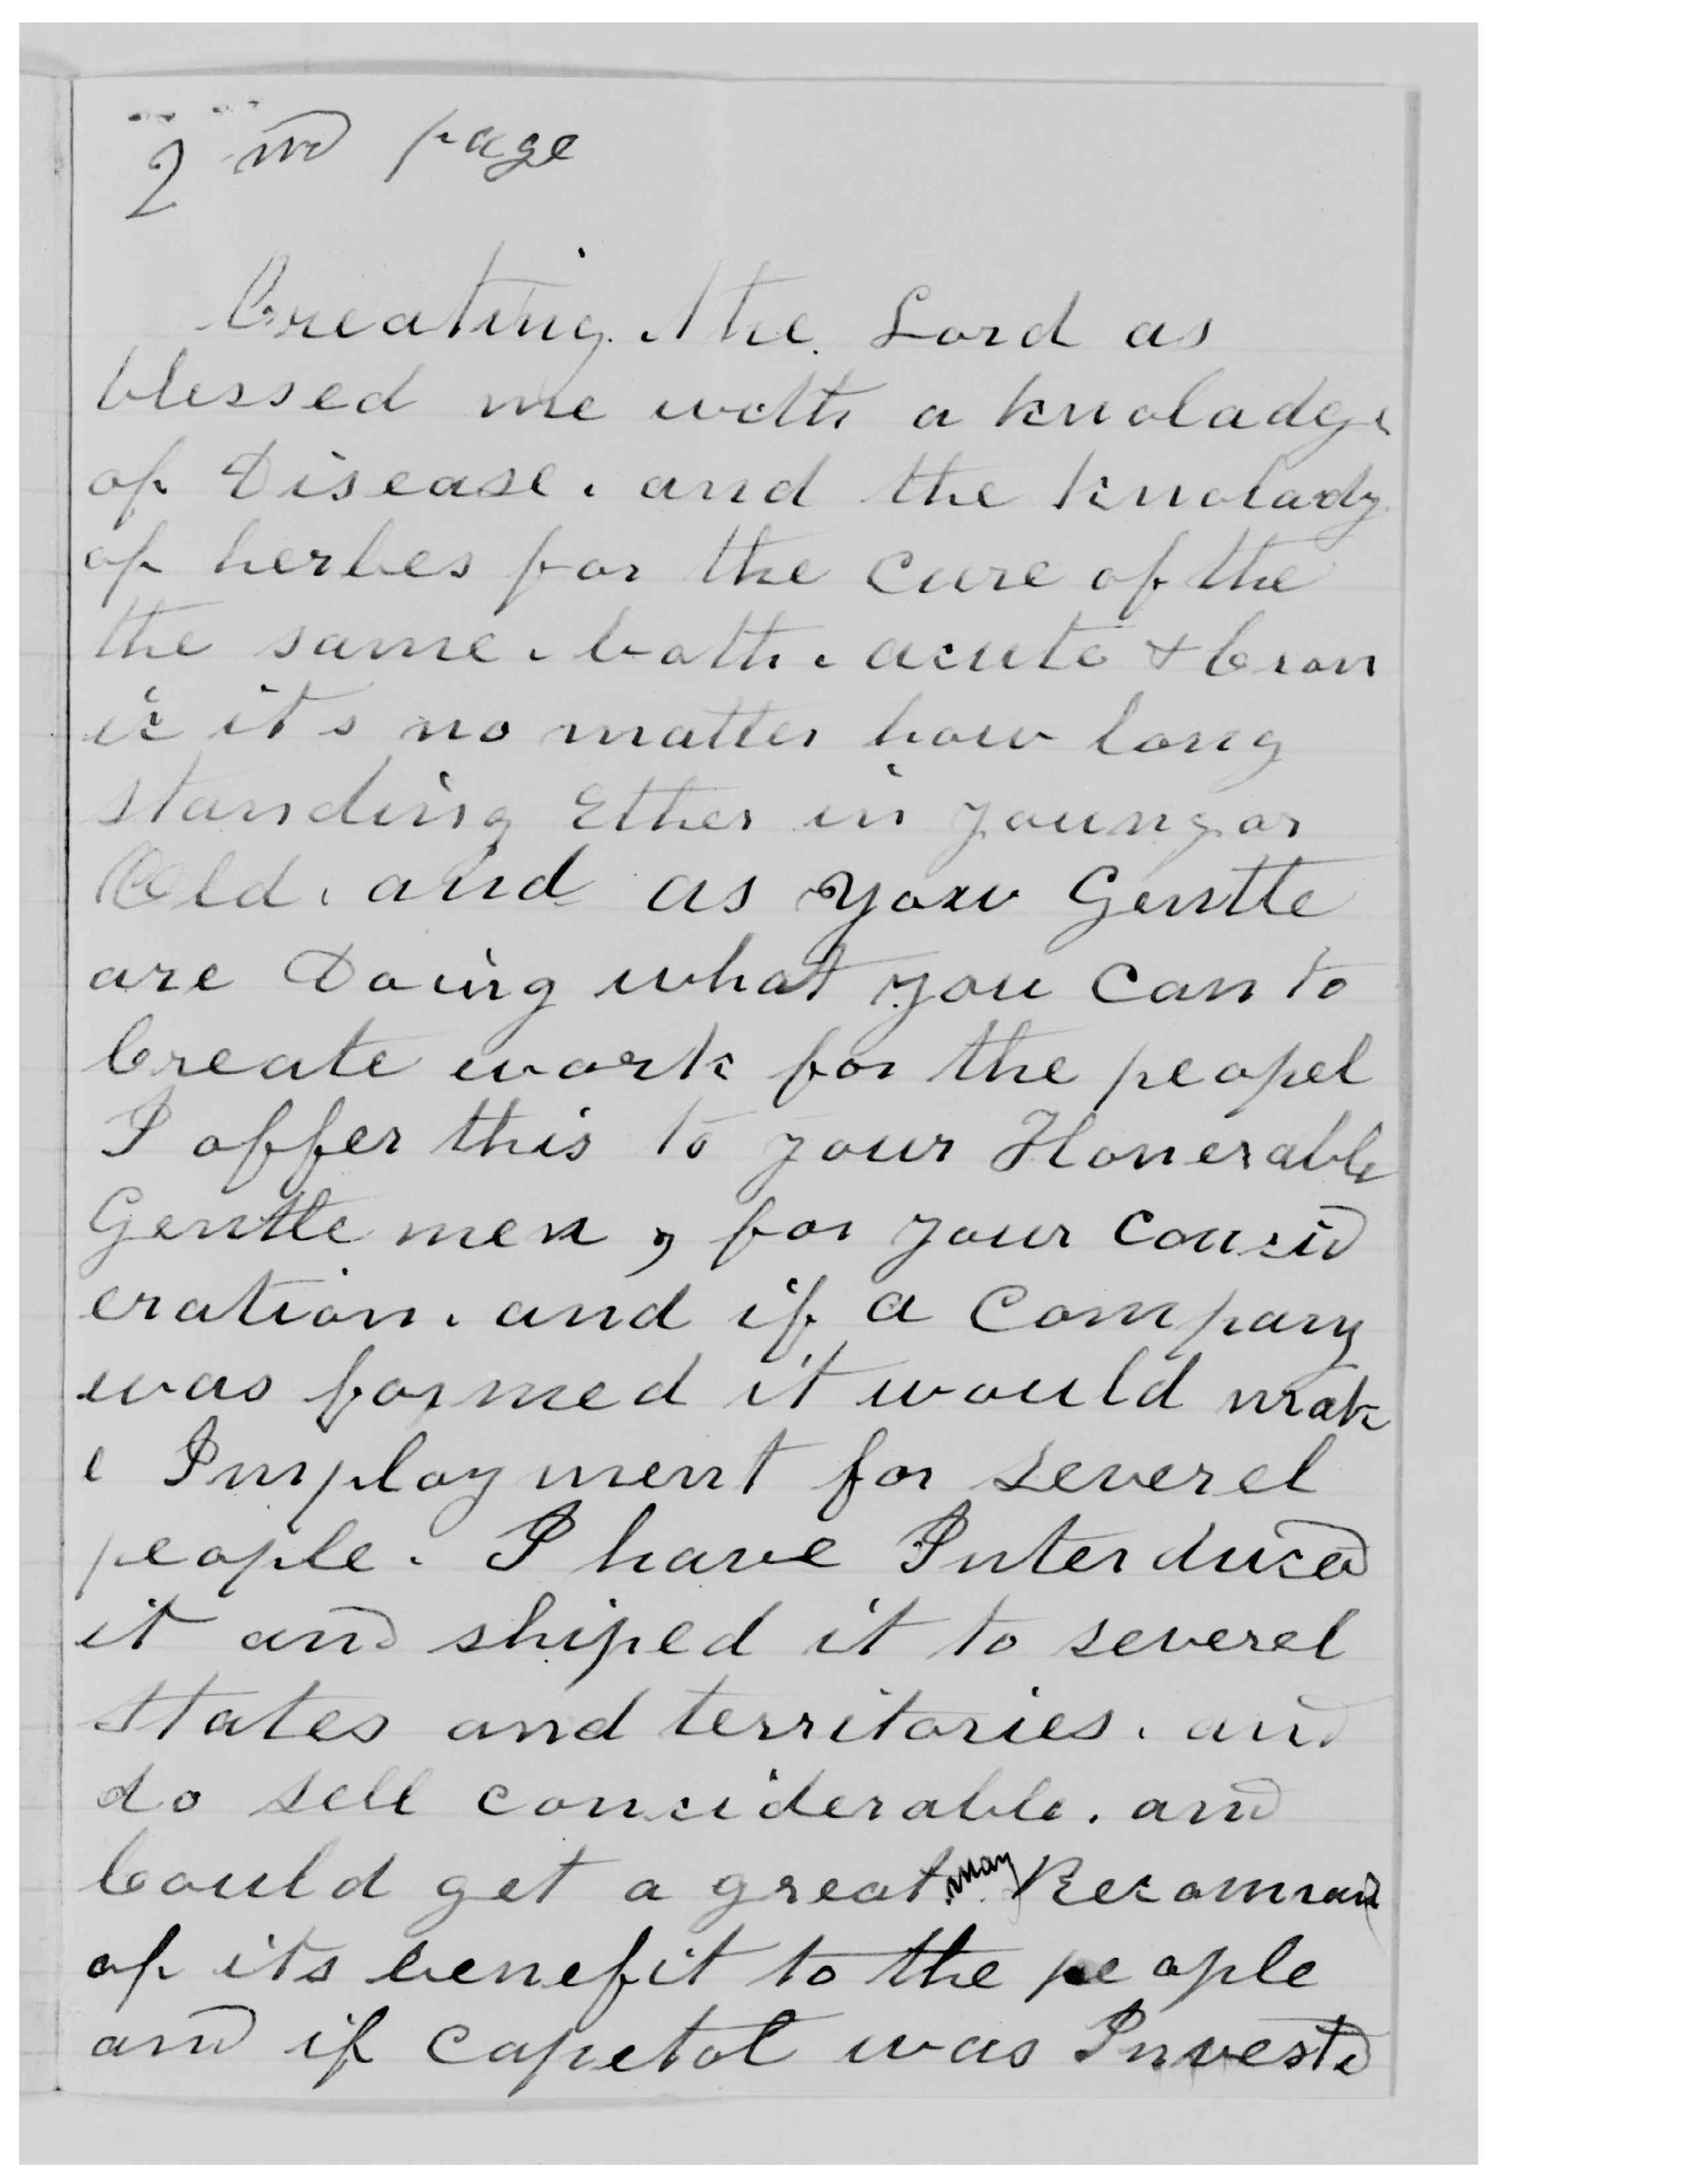 2nd page
Creating. the. Lord as
blessed me with a knoladge
of Disease. and the knoladg
of herbes for the cure of the
the same. both. acute & Cron
ic it's no matter how long
standing Ether in young or
Old. and as you Gentle
are Doing what you can to
Create work for the peopel
I offer this to your Honerable
Gentle men, for your consid
eration. and if a company
was formed it would mak
e Imployment for severel
people. I have Interduced
it and shiped it to severel
states and territories. and
do sell considerable. and
Could get a great many Recomand
of its benefit to the people
and if capetol was Invested